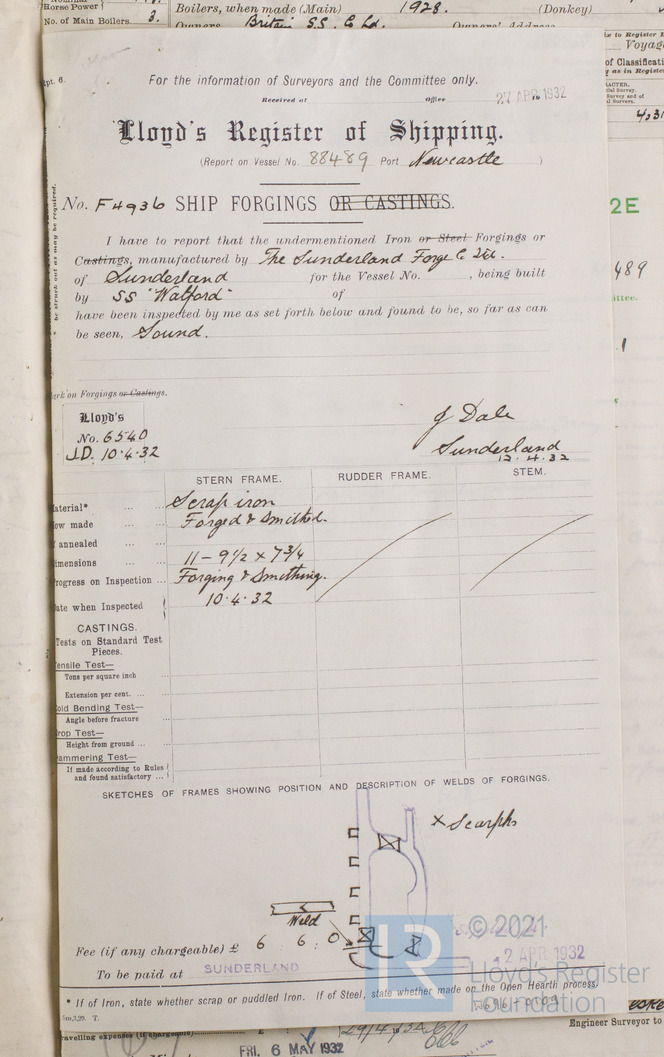 Horse Power
No. of Main Boilers 3.
Boilers, when made (Main) 1928. (Donkey)
Owners Britain S.S. Co Ld. Owners' Address
Rpt. 6.
For the information of Surveyors and the Committee only.
Received at Office 27 APR 1932
Lloyd's Register of Shipping.
(Report on Vessel No. 88489 Port Newcastle )
No. F4936 SHIP FORGINGS OR CASTINGS.
I have to report that the undermentioned Iron or Steel Forgings or
Castings, manufactured by The Sunderland Forge Co Ltd.
of Sunderland for the Vessel No. , being built
by SS "Walford" of
have been inspected by me as set forth below and found to be, so far as can
be seen, Sound.
be struck out as may be required.
Mark on Forgings or Castings.
Lloyd's
No. 6540
J.D. 10.4.32
J Dale
Sunderland
12.4.32
STERN FRAME. RUDDER FRAME. STEM.
Material* ... ... Scrap iron
How made ... ... Forged & Smithed.
If annealed ... ...
Dimensions ... ... 11 - 9½ x 7¾
Progress on Inspection ... Forging & Smithing.
Date when Inspected 10.4.32
CASTINGS.
Tests on Standard Test
Pieces.
Tensile Test—
Tons per square inch ...
Extension per cent. ... ...
Cold Bending Test—
Angle before fracture ...
Drop Test—
Height from ground ... ...
Hammering Test—
If made according to Rules
and found satisfactory ...
SKETCHES OF FRAMES SHOWING POSITION AND DESCRIPTION OF WELDS OF FORGINGS.
x Scarphs
Weld
Fee (if any chargeable) £ 6 : 6 : 0
To be paid at SUNDERLAND
2 APR 1932
* If of Iron, state whether scrap or puddled Iron. If of Steel, state whether made on the Open Hearth process.
LR
© 2021
Lloyd's Register
Foundation
Travelling expenses (if chargeable)
FRI. 6 MAY 1932
Engineer Surveyor to
to Register
Voyag
of Classificati
2E
489
ittee.